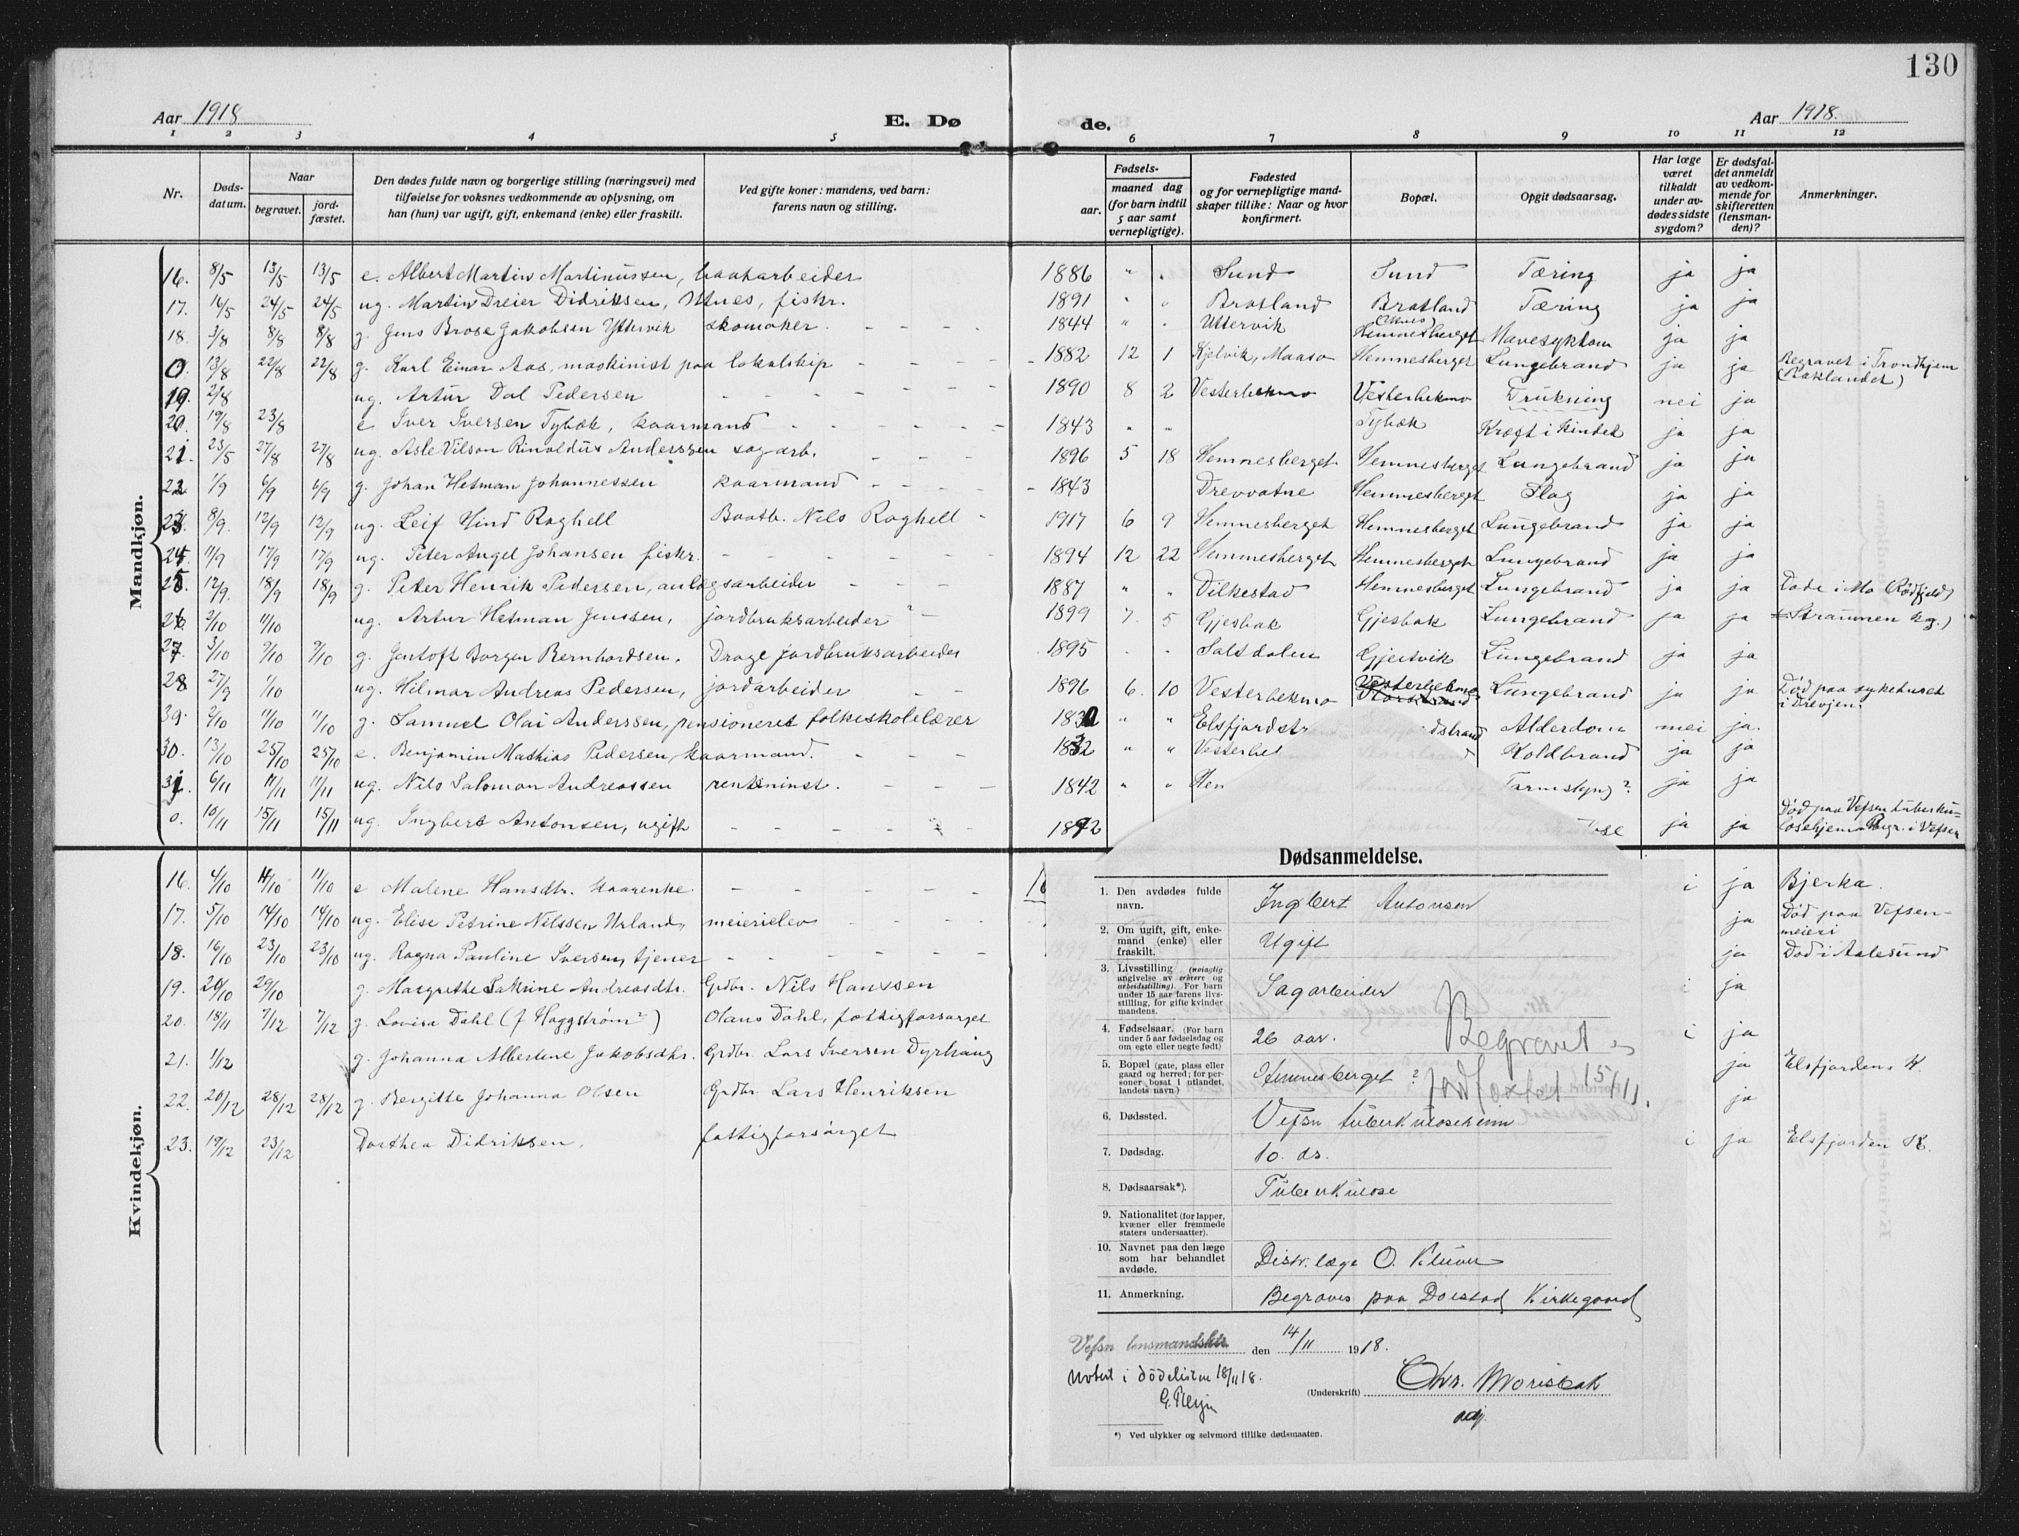 130
Aar 1918
E. Døde.
Aar 1918.
1 2 3 4 5 6 7 8 9 10 11 12
Nr.
Døds-
datum.
Naar
begravet.
jord-
fæstet.
Den dødes fulde navn og borgerlige stilling (næringsvei) med
tilføielse for voksnes vedkommende av oplysning, om
han (hun) var ugift, gift, enkemand (enke) eller fraskilt.
Ved gifte koner: mandens, ved barn:
farens navn og stilling.
Fødsels-
aar.
maaned dag
(for barn indtil
5 aar samt
vernepligtige).
Fødested
og for vernepligtige mand-
skaper tillike: Naar og hvor
konfirmert.
Bopæl.
Opgit dødsaarsag.
Har læge
været
tilkaldt
under av-
dødes sidste
sygdom?
Er dødsfal-
det anmeldt
av vedkom-
mende for
skifteretten
(lensman-
den)?
Anmerkninger.
Mandkjøn.
16. 8/5 13/5 13/5 e. Albert Martin Martinussen, baatarbeider 1886 " . Sund Sund Tæring ja ja
17. 16/5 24/5 24/5 ug. Martin Dreier Didriksen, Utnes, fiskr. 1891 " " Bratland Bratland Tæring ja ja
18. 3/8 8/8 8/8 g. Jens Brose Jakobsen Yttervik skomaker. 1844 " . Uttervik Hemnesberget Mavesykdom ja ja
0. 13/8 22/8 22/8 g. Karl Einar Aas, maskinist paa lokalskip 1882 12 1 Kjelvik, Maasø Hemnesberget Lungebrand ja ja Begravet i Trondhjem
19. 2/8 ug. Artur Dal Pedersen 1890 8 2 Vesterbekmo Vesterbekmo Drukning nei ja
20. 19/8 23/8 e Iver Iversen Tybæk, kaarmand 1843 " " Tybæk Kræft i kindet ja ja
21. 23/5 27/8 27/8 ug. Asle Vilson Rinoldus Anderssen sagarb. 1896 5 18 Hemnesberget Hemnesberget Lungebrand ja ja
22 1/9 6/9 6/9 g. Johan Hetman Johannessen kaarmand 1843 Drevvatne Hemnesberget Slag ja ja
23. 8/9. 12/9 12/9 ug. Leif Hind Roghell Baatb. Nils Roghell 1917 6 9 Hemnesberget Hemnesberget Lungebrand ja ja
24. 11/9 17/9 17/9 ug. Peter Angel Johansen fiskr. 1894 12 22 Hemnesberget Hemnesberget Lungebrand ja ja
25. 12/9. 18/9 18/9 g. Peter Henrik Pedersen, anlegsarbeider 1887 " " Dilkestad Hemnesberget Lungebrand ja ja Døde i Mo Rødfjeld
26. 2/10 11/10 ug. Artur Hetman Jenssen, jordbruksarbeider 1899 7. 5 Gjesbak Gjesbak Lungebrand ja ja Straumen kg.)
27. 3/10 9/10 9/10 g. Jentoft Borgen Bernhardsen, Drage jordbruksarbeider 1895 . . Saltdalen Gjestvik Lungebrand ja ja
28 27/9 1/10 ug. Hilmar Andreas Pedersen, jordarbeider 1896 6. 10 Vesterbekmo Vesterbekmo Lungebrand ja ja Død paa sykehuset
i Drevjen.
29. 2/10 11/10 11/10 g. Samuel Olai Anderssen, pensioneret folkeskolelærer 1830 " " Elsfjordstr Alderdom nei ja.
30. 13/10 25/10 25/10 e. Benjamin Mathias Pedersen, kaarmand. 1832 " " Vesterbek Koldbrand ja ja
31. 6/11 11/11 11/11 ug. Nils Salomon Andreassen renteninst. 1842 " " Hem Tarmslyng? ja ja
0. 10/11 15/11 15/11 ug. Ingbert Antonsen, ugift 1892 ja ja Død paa Vefsen tuberku-
losehjem Begr. i Vefsen
Kvindekjøn.
16. 4/10 11/10 11/10 e Malene Hansdtr. kaarenke. ja Bjerka.
17. 5/10 14/10 14/10 ug. Elise Petrine Nilssen Urland, meierielev ja Død paa Vefsen-
meieri
18. 16/10 23/10 23/10 ug. Ragna Pauline Iversen, tjener ja Død i Aalesund
19. 20/10 29/10 g. Margrethe Katrine Andreasdtr. Grdbr. Nils Hanssen ja
20. 18/11 7/12 7/12 g. Lovisa Dahl (f Haggstrøm?) Olaus Dahl, fattigforsørget ja
21. 1/12 g. Johanna Albertine Jakobsdtr. Grdbr. Lars Iversen Dyrhaug ja Elsfjordens K.
22. 20/12 28/12 28/12 g. Bergitte Johanna Olsen Grdbr. Lars Henriksen ja
23. 19/12 23/12 Dorthea Didriksen, fattigforsørget ja Elsfjorden K.
Dødsanmeldelse.
1. Den avdødes fulde
navn. Ingbert Antonsen
2. Om ugift, gift, enke-
mand (enke) eller
fraskilt. Ugift
3. Livsstilling (nøiagtig
angivelse av erhverv og
arbeidsstilling). For barn
under 15 aar farens livs-
stilling, for gifte kvinder
mandens. Sagarbeider
4. Fødselsaar. (For barn
under 5 aar fødselsdag og
om egte eller uegte født) 26 aar. Begravet og
5. Bopæl (gate, plass eller
gaard og herred; for per-
soner bosat i utlandet,
landets navn) Hemnesberget ? jordfæstet 15/11.
6. Dødssted. Vefsn tuberkulosehjem
7. Dødsdag. 10. ds.
8. Dødsaarsak*). Tuberkulose
9. Nationalitet (for lapper,
kvæner eller fremmede
staters undersaatter).
10. Navnet paa den læge
som har behandlet
avdøde. Distr.læge O. Kluwer
11. Anmerkning. Begraves paa Dolstad Kirkegaard
Vefsn lensmandsktr. den 14/11 1918.
Notert i dödslisten 18/11 18.
(Underskrift) Chr. Morisbak
*) Ved ulykker og selvmord tillike dødsmaaten.